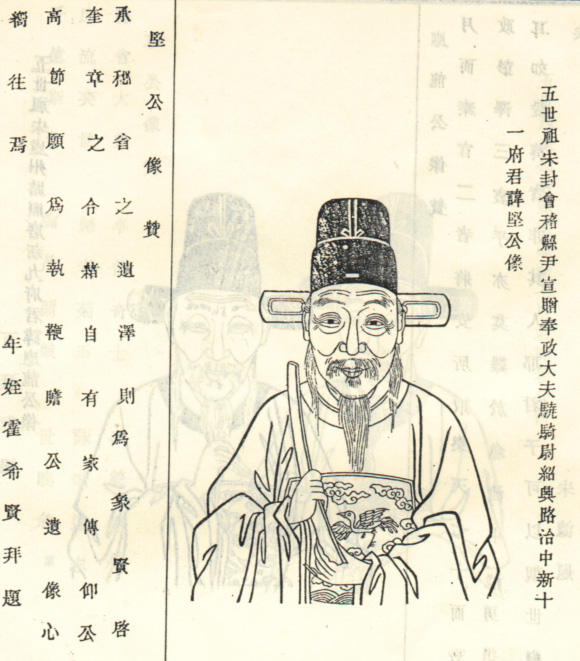 五世祖未封會稽縣尹宣贈奉政大夫驍騎尉紹興路治中新十
一府君諱堅公像
堅公像贊
承秘省之遺澤則爲象賢啓
奎章之令緒自有家傳仰公
高節願爲執鞭瞻公遺像心
嚮往焉
年姪霍希賢拜題